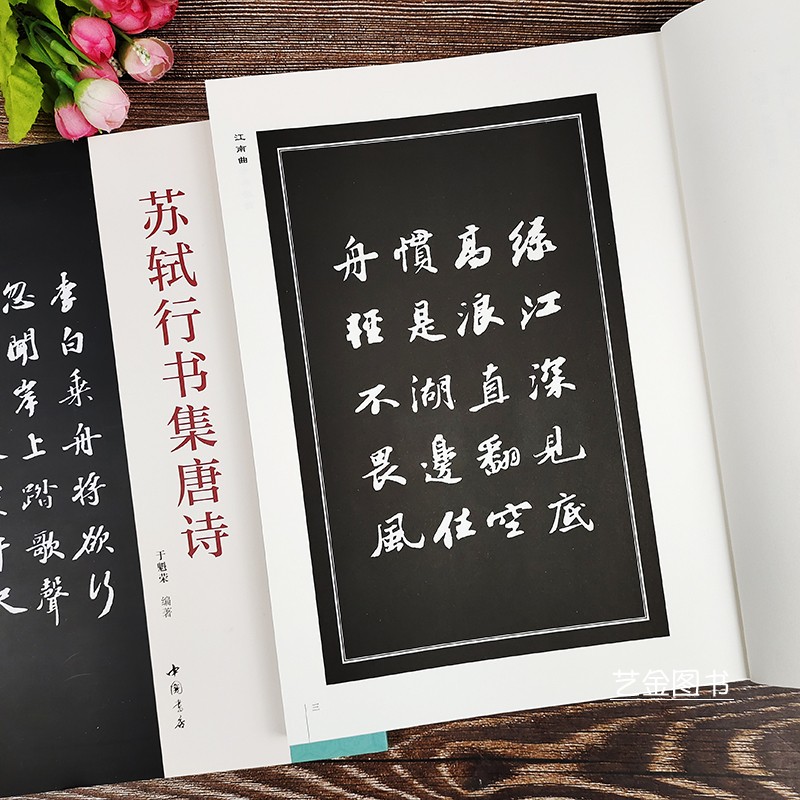 江南曲
綠江深見底
高浪直翻空
慣是湖邊住
舟輕不畏風
三
苏轼行书集唐诗
于魁荣 编著
中國書店
李白乘舟将欲行
忽聞岸上踏歌聲
艺金图书